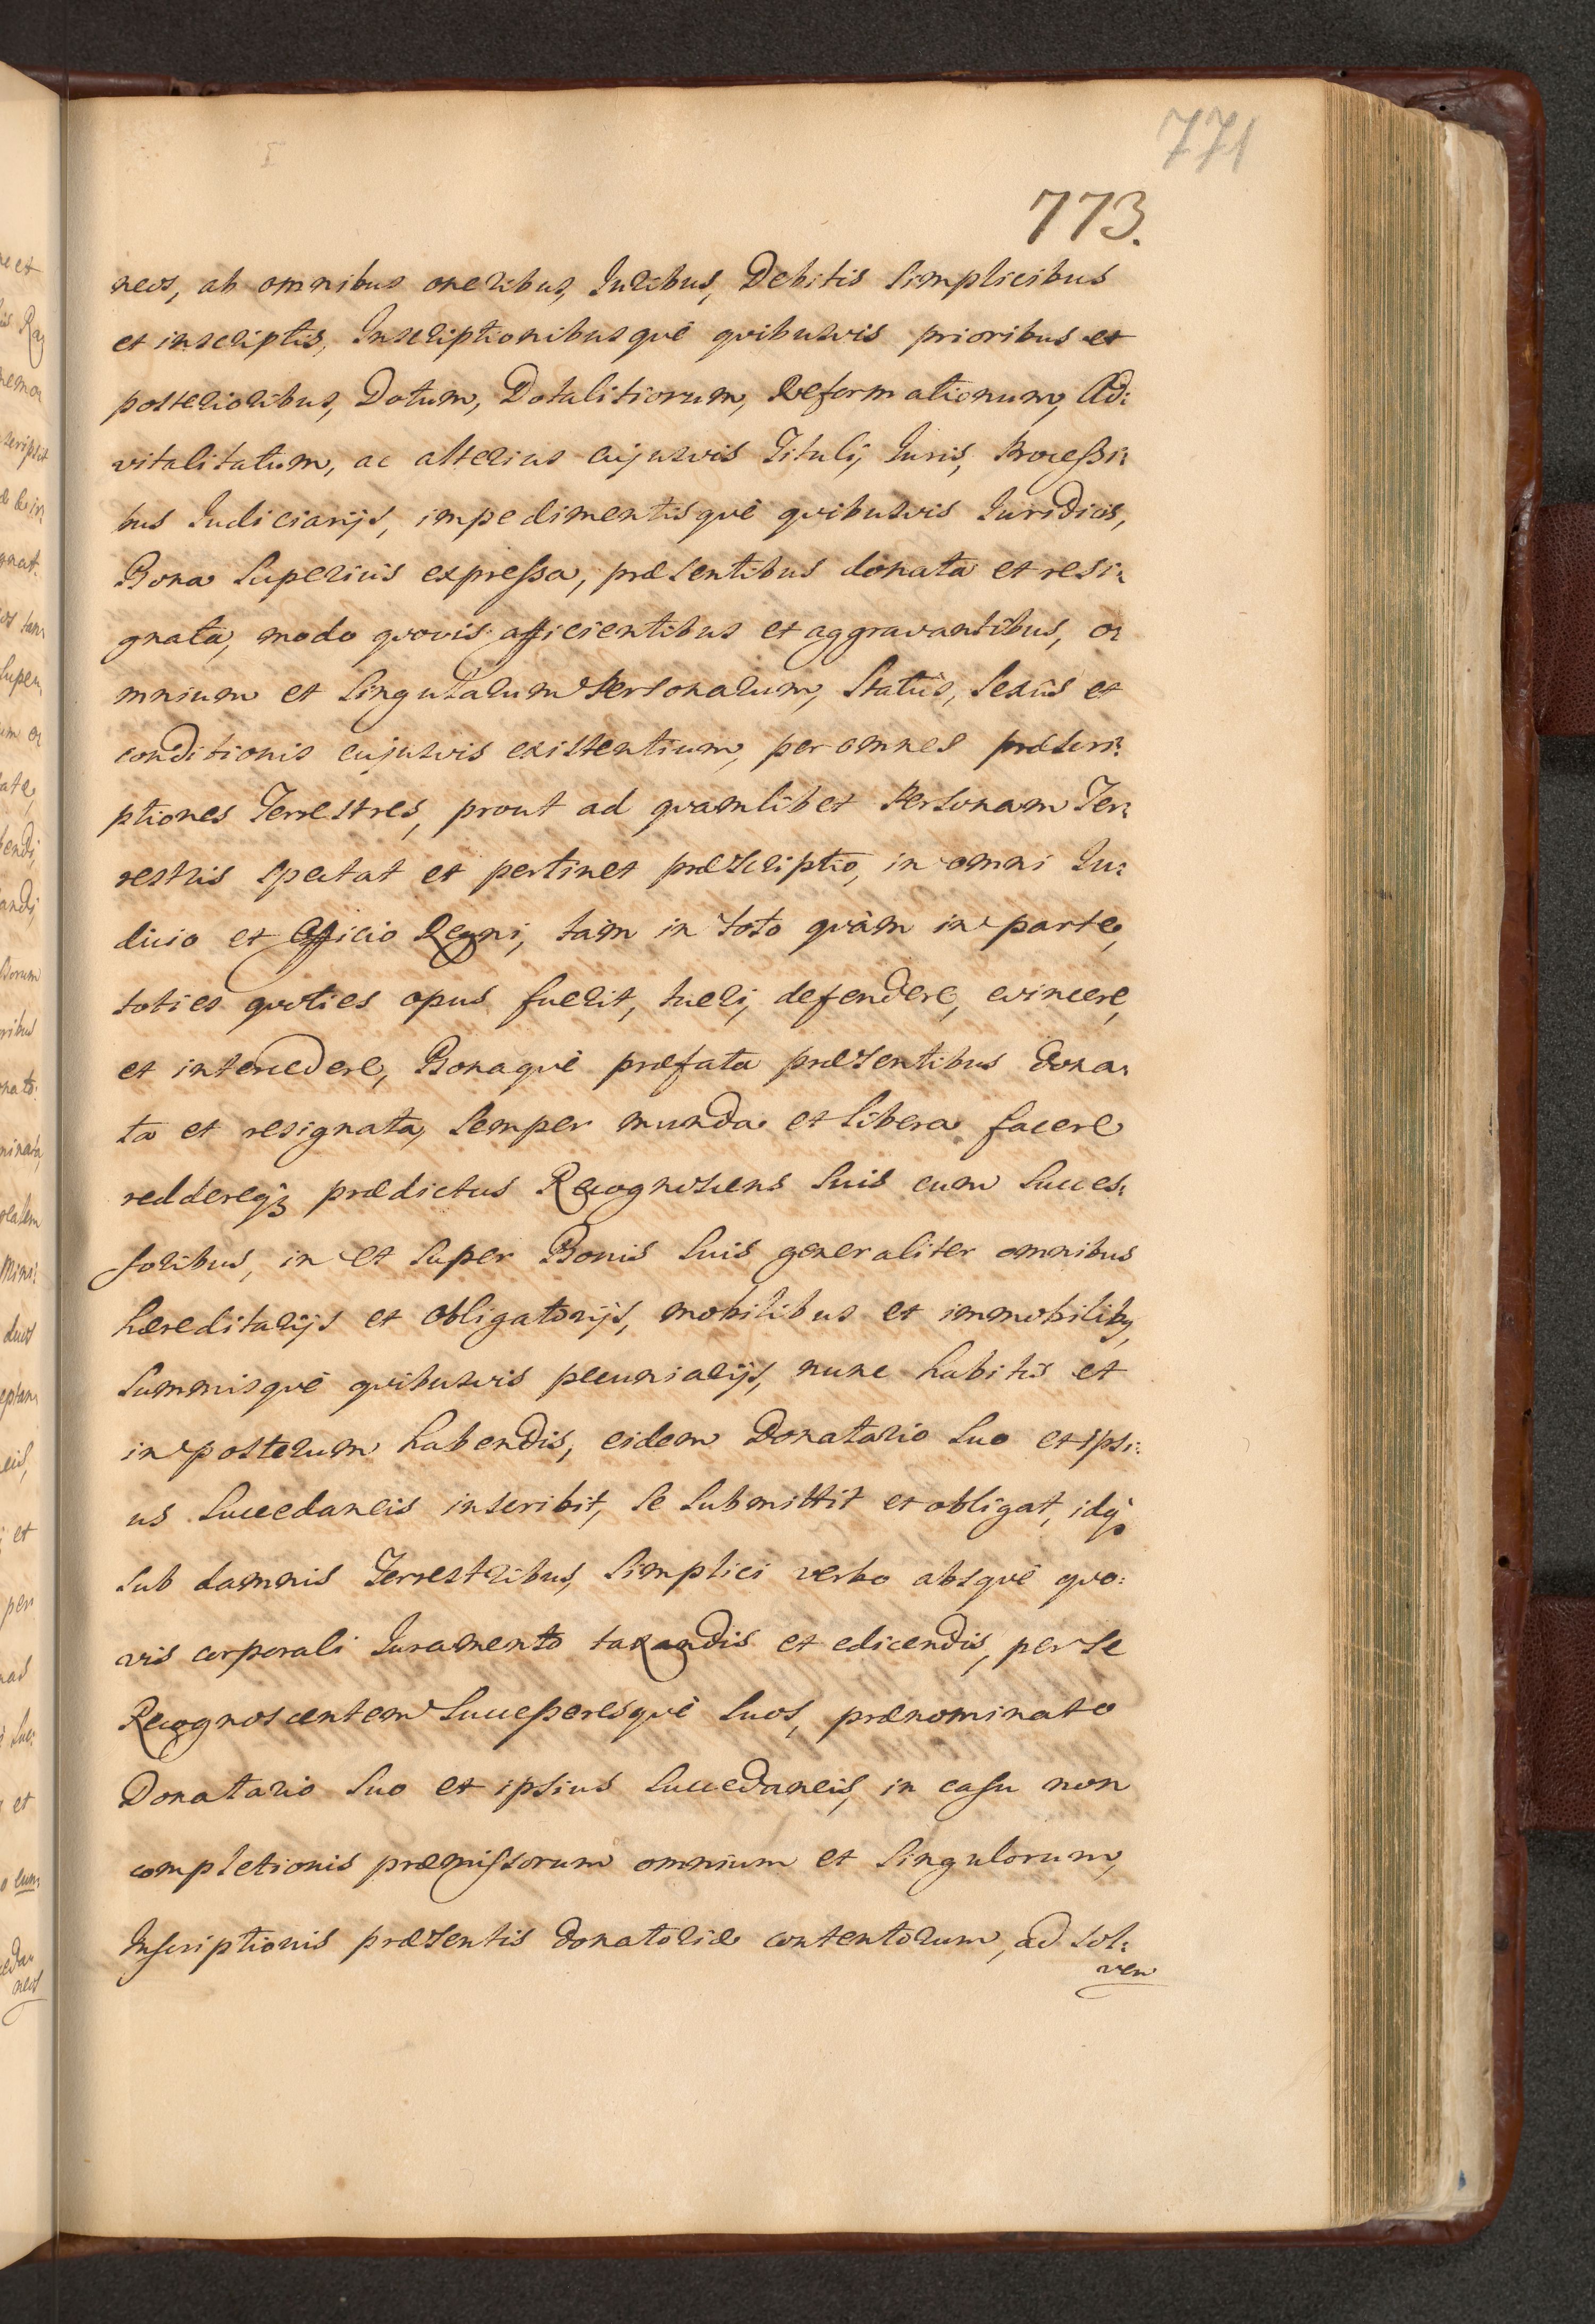 771
773.
neos, ab omnibus oneribus, Juribus, Debitis Simplicibus
et inscriptis, Inscriptionibusquè quibusvis prioribus et
posterioribus, Dotum, Dotalitiorum, Reformationum, Ad:
vitalitatum, ac alterius cujusvis Tituli, Juris, Processi:
bus Judiciarijs, impedimentisquè quibusvis Juridicis,
Bona Superius expressa, præsentibus donata et resi:
gnata, modo quovis afficientibus et aggravantibus, o:
mnium et Singularum Personarum, Statûs, Sexûs et
conditionis cujusvis existentium, per omnes præscri:
ptiones Terrestres, prout ad quamlibet Personam Ter:
restris spectat et pertinet præscriptio, in omni Ju:
dicio et Officio Regni, tàm in toto quàm in parte,
toties quoties opus fuerit, tueri, defendere, evincere,
et intercedere, Bonaquè præfata præsentibus dona:
ta et resignata, Semper munda et libera facere
reddereq3 prædictus Recognoscens Suis cum Succes:
soribus, in et Super Bonis Suis generaliter omnibus
hæreditarijs et obligatorijs, mobilibus et immobiliby,
Summisquè quibusvis pecuniarijs, nunc habitis et
in posterum habendis, eidem Donatario Suo et ipsi:
us Succedaneis inscribit, Se Submittit et obligat, idq3
Sub damnis Terrestribus, Simplici verbo absquè quo:
vis corporali Juramento taxandis et edicendis, per Se
Recognoscentem Successoresquè Suos, prænominato
Donatario Suo et ipsius Succedaneis, in casu non
completionis præmissorum omnium et Singulorum,
Inscriptionis præsentis donatoriæ contentorum, ad Sol:
ven